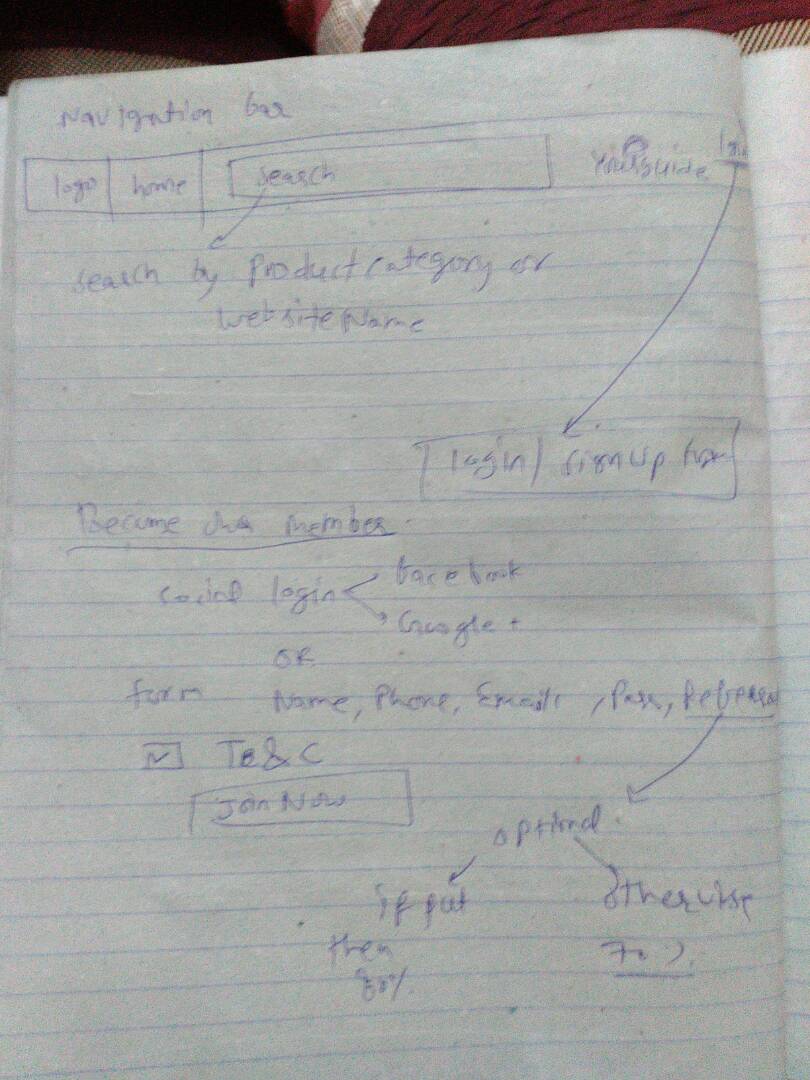 Navigation bar
logo home search Yourguide login
search by Product category or
website Name
login / signup form
Become our member
social login facebook
Google +
OR
form Name, Phone, Email, Pass, Referral
T&C
Join Now
optional
if put otherwise
then 70%
80%